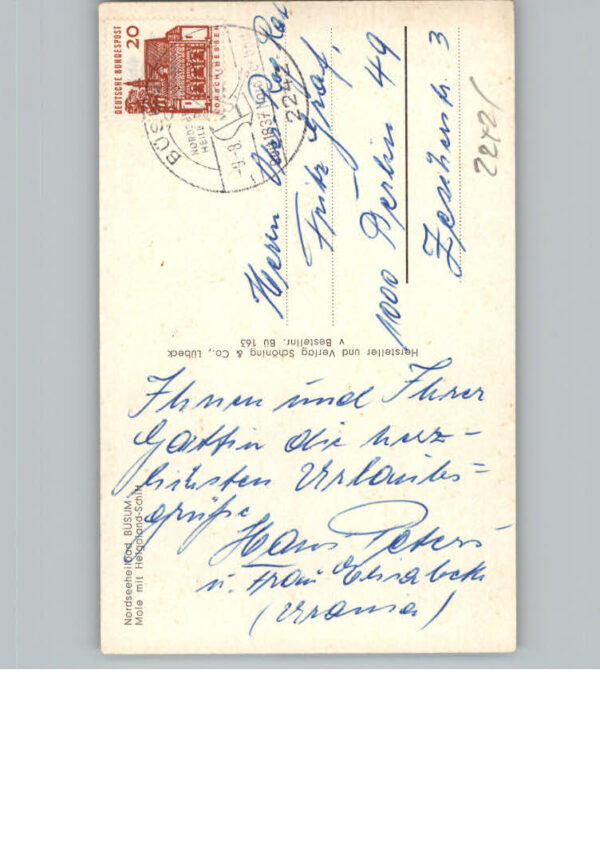 DEUTSCHE BUNDESPOST
20
LORSCH/HESSEN
BÜSUM
2242
Herrn Ober Reg. Rat
Fritz Graf,
1000 Berlin 49
3
22421
Hersteller und Verlag Schöning & Co., Lübeck
v Bestellnr. BÜ 163
Ihnen und Ihrer
Gattin die herz-
lichsten Urlaubs=
grüße
Hans Peters
u. Frau Elisabeth
(Urania)
Nordseeheilbad BÜSUM
Mole mit Helgoland-Schiff